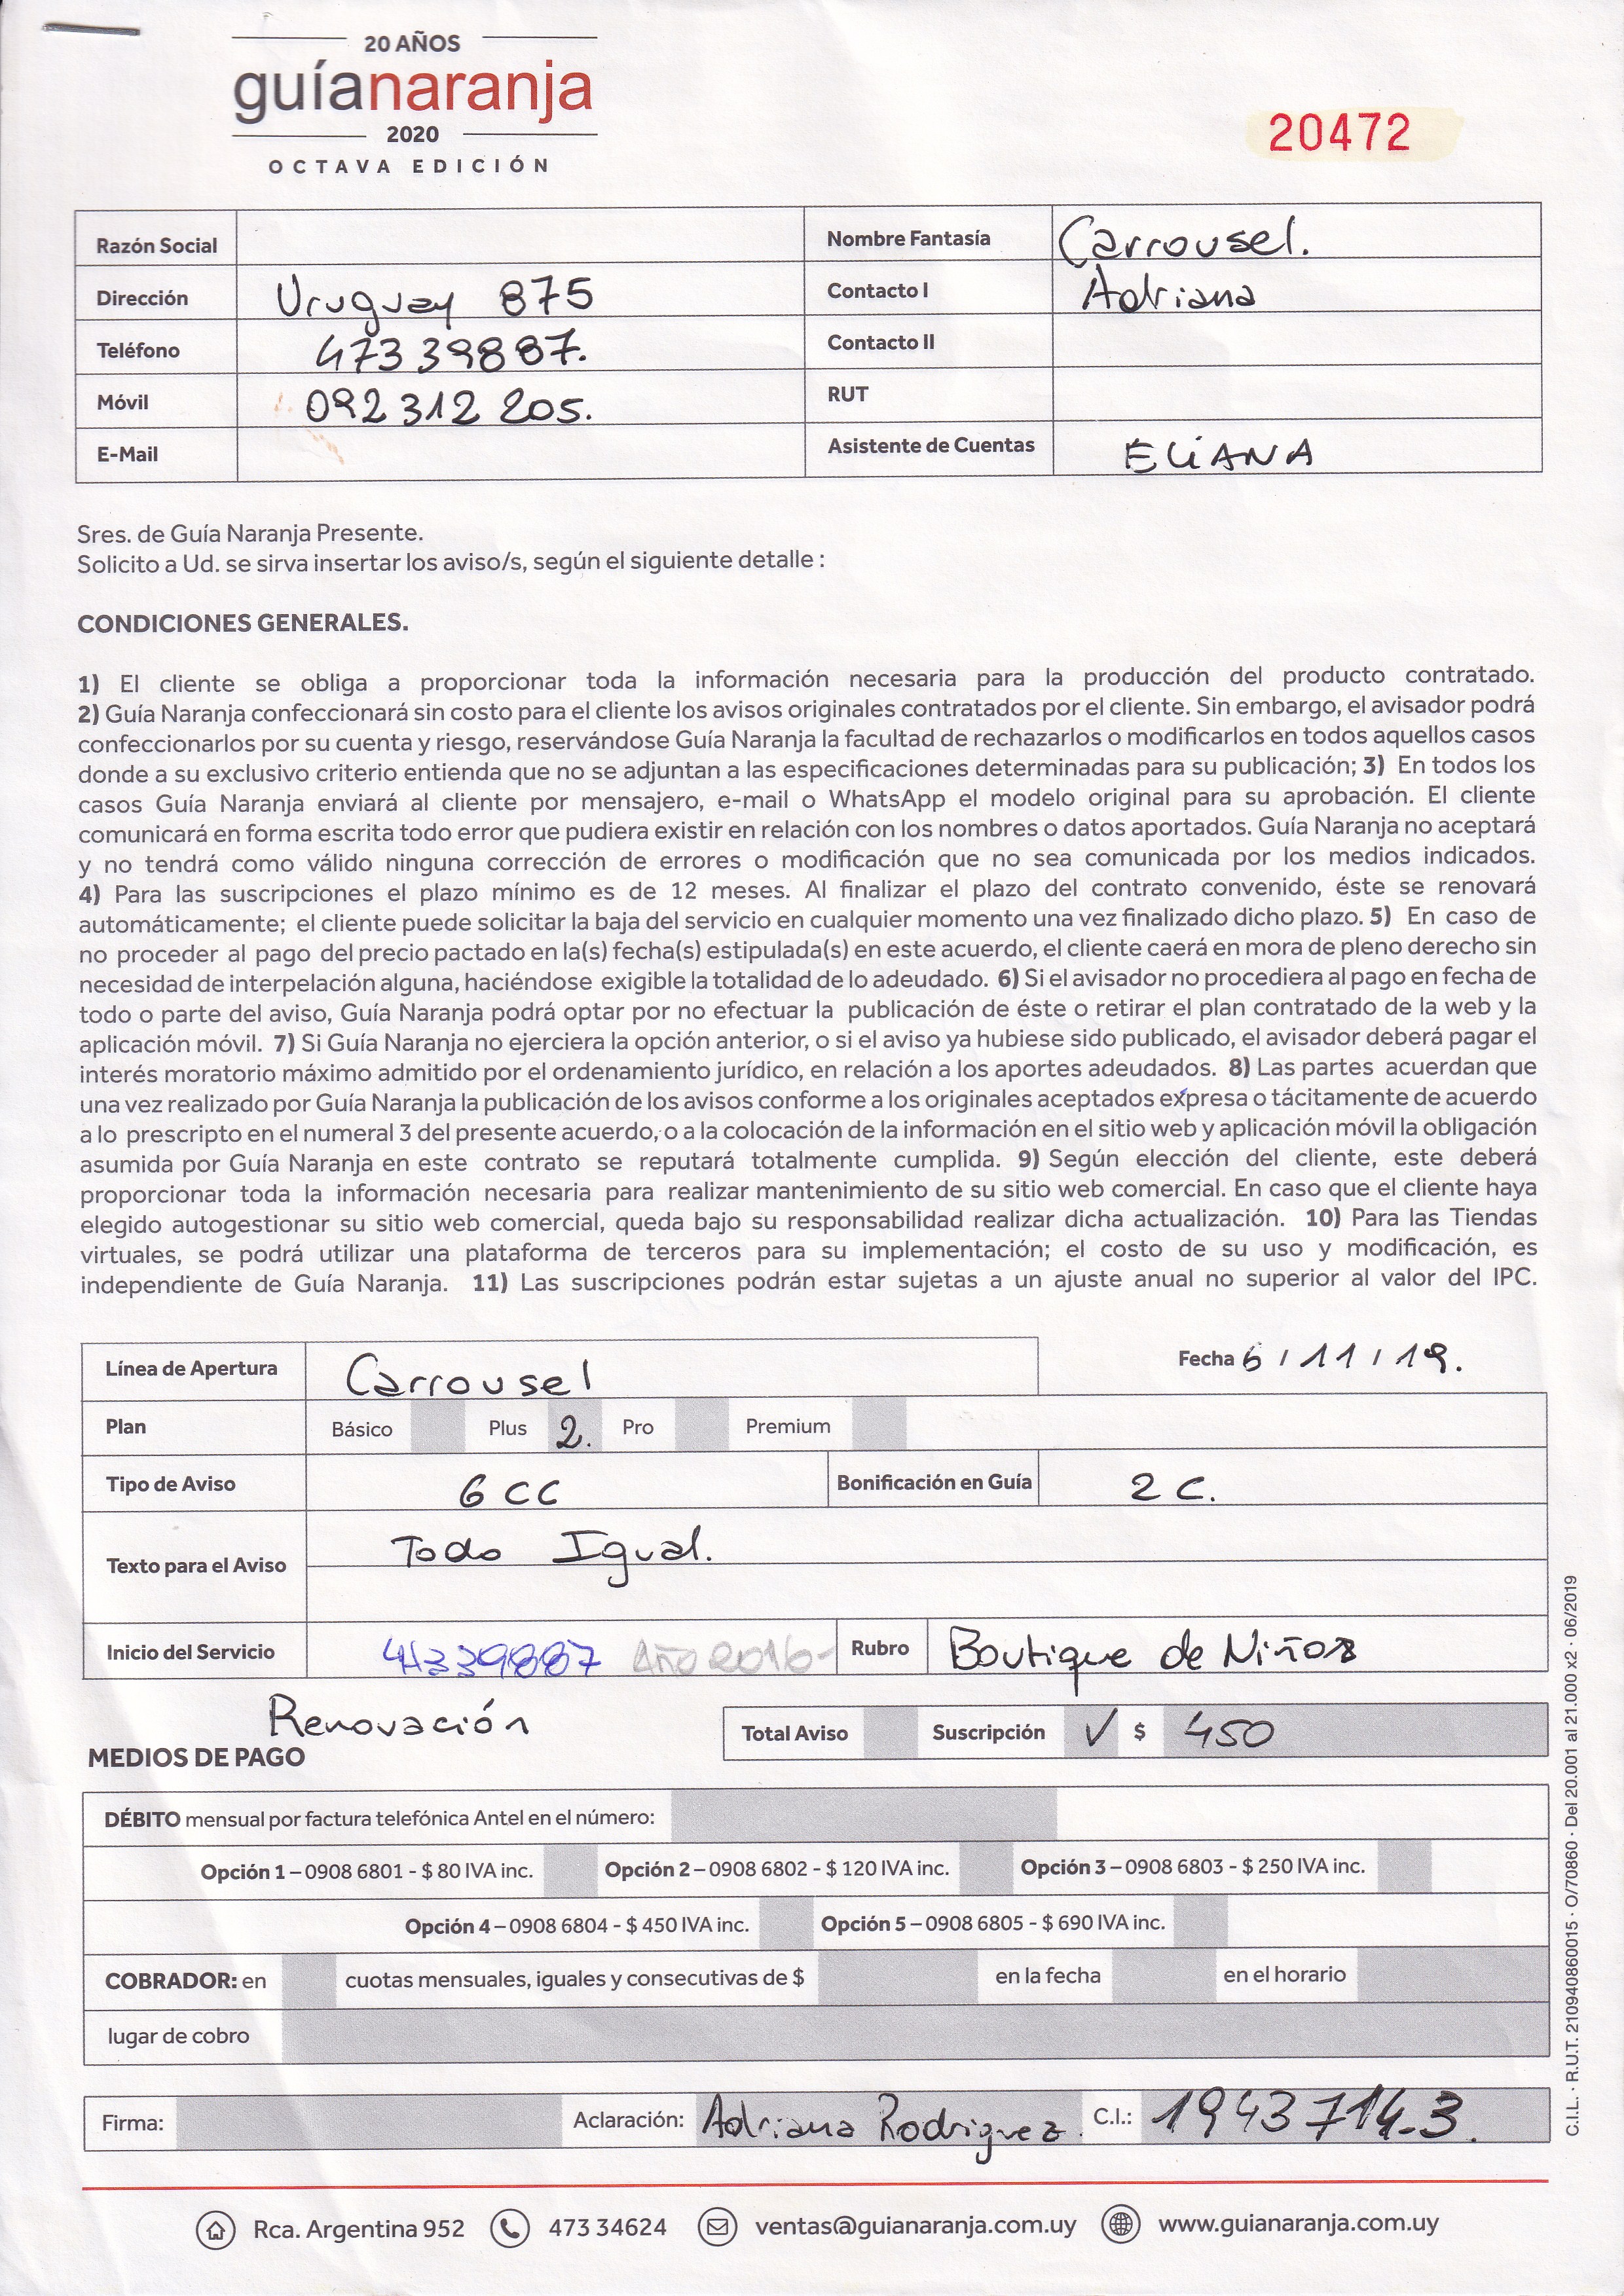 20 AÑOS
guíanaranja
2020
OCTAVA EDICIÓN
20472
Razón Social
Nombre Fantasía Carrousel.
Dirección Uruguay 875
Contacto I Adriana
Teléfono 473 39887.
Contacto II
Móvil 092 312 205.
RUT
E-Mail
Asistente de Cuentas ELiANA
Sres. de Guía Naranja Presente.
Solicito a Ud. se sirva insertar los aviso/s, según el siguiente detalle :
CONDICIONES GENERALES.
1) El cliente se obliga a proporcionar toda la información necesaria para la producción del producto contratado.
2) Guía Naranja confeccionará sin costo para el cliente los avisos originales contratados por el cliente. Sin embargo, el avisador podrá
confeccionarlos por su cuenta y riesgo, reservándose Guía Naranja la facultad de rechazarlos o modificarlos en todos aquellos casos
donde a su exclusivo criterio entienda que no se adjuntan a las especificaciones determinadas para su publicación; 3) En todos los
casos Guía Naranja enviará al cliente por mensajero, e-mail o WhatsApp el modelo original para su aprobación. El cliente
comunicará en forma escrita todo error que pudiera existir en relación con los nombres o datos aportados. Guía Naranja no aceptará
y no tendrá como válido ninguna corrección de errores o modificación que no sea comunicada por los medios indicados.
4) Para las suscripciones el plazo mínimo es de 12 meses. Al finalizar el plazo del contrato convenido, éste se renovará
automáticamente; el cliente puede solicitar la baja del servicio en cualquier momento una vez finalizado dicho plazo. 5) En caso de
no proceder al pago del precio pactado en la(s) fecha(s) estipulada(s) en este acuerdo, el cliente caerá en mora de pleno derecho sin
necesidad de interpelación alguna, haciéndose exigible la totalidad de lo adeudado. 6) Si el avisador no procediera al pago en fecha de
todo o parte del aviso, Guía Naranja podrá optar por no efectuar la publicación de éste o retirar el plan contratado de la web y la
aplicación móvil. 7) Si Guía Naranja no ejerciera la opción anterior, o si el aviso ya hubiese sido publicado, el avisador deberá pagar el
interés moratorio máximo admitido por el ordenamiento jurídico, en relación a los aportes adeudados. 8) Las partes acuerdan que
una vez realizado por Guía Naranja la publicación de los avisos conforme a los originales aceptados expresa o tácitamente de acuerdo
a lo prescripto en el numeral 3 del presente acuerdo, o a la colocación de la información en el sitio web y aplicación móvil la obligación
asumida por Guía Naranja en este contrato se reputará totalmente cumplida. 9) Según elección del cliente, este deberá
proporcionar toda la información necesaria para realizar mantenimiento de su sitio web comercial. En caso que el cliente haya
elegido autogestionar su sitio web comercial, queda bajo su responsabilidad realizar dicha actualización. 10) Para las Tiendas
virtuales, se podrá utilizar una plataforma de terceros para su implementación; el costo de su uso y modificación, es
independiente de Guía Naranja. 11) Las suscripciones podrán estar sujetas a un ajuste anual no superior al valor del IPC.
Línea de Apertura Carrousel
Fecha 6 / 11 / 19.
Plan Básico Plus 2. Pro Premium
Tipo de Aviso 6 CC Bonificación en Guía 2 C.
Texto para el Aviso Todo Igual.
Inicio del Servicio 47339887 Año 2016- Rubro Boutique de Niños
Renovación
Total Aviso Suscripción ✓ $ 450
MEDIOS DE PAGO
DÉBITO mensual por factura telefónica Antel en el número:
Opción 1 – 0908 6801 - $ 80 IVA inc. Opción 2 – 0908 6802 - $ 120 IVA inc. Opción 3 – 0908 6803 - $ 250 IVA inc.
Opción 4 – 0908 6804 - $ 450 IVA inc. Opción 5 – 0908 6805 - $ 690 IVA inc.
COBRADOR: en cuotas mensuales, iguales y consecutivas de $ en la fecha en el horario
lugar de cobro
Firma: Aclaración: Adriana Rodriguez. C.I.: 1943714-3.
Rca. Argentina 952 473 34624 ventas@guianaranja.com.uy www.guianaranja.com.uy
C.I.L. · R.U.T. 210940860015 · O/70860 · Del 20.001 al 21.000 x2 · 06/2019